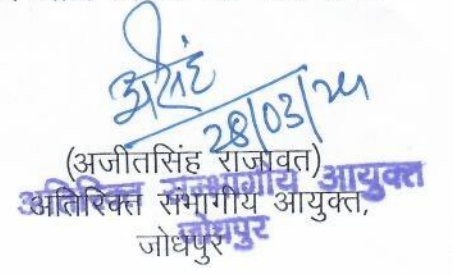 28/03/24
(अजीतसिंह राजावत)
अतिरिक्त संभागीय आयुक्त
अतिरिक्त संभागीय आयुक्त,
जोधपुर
जोधपुर